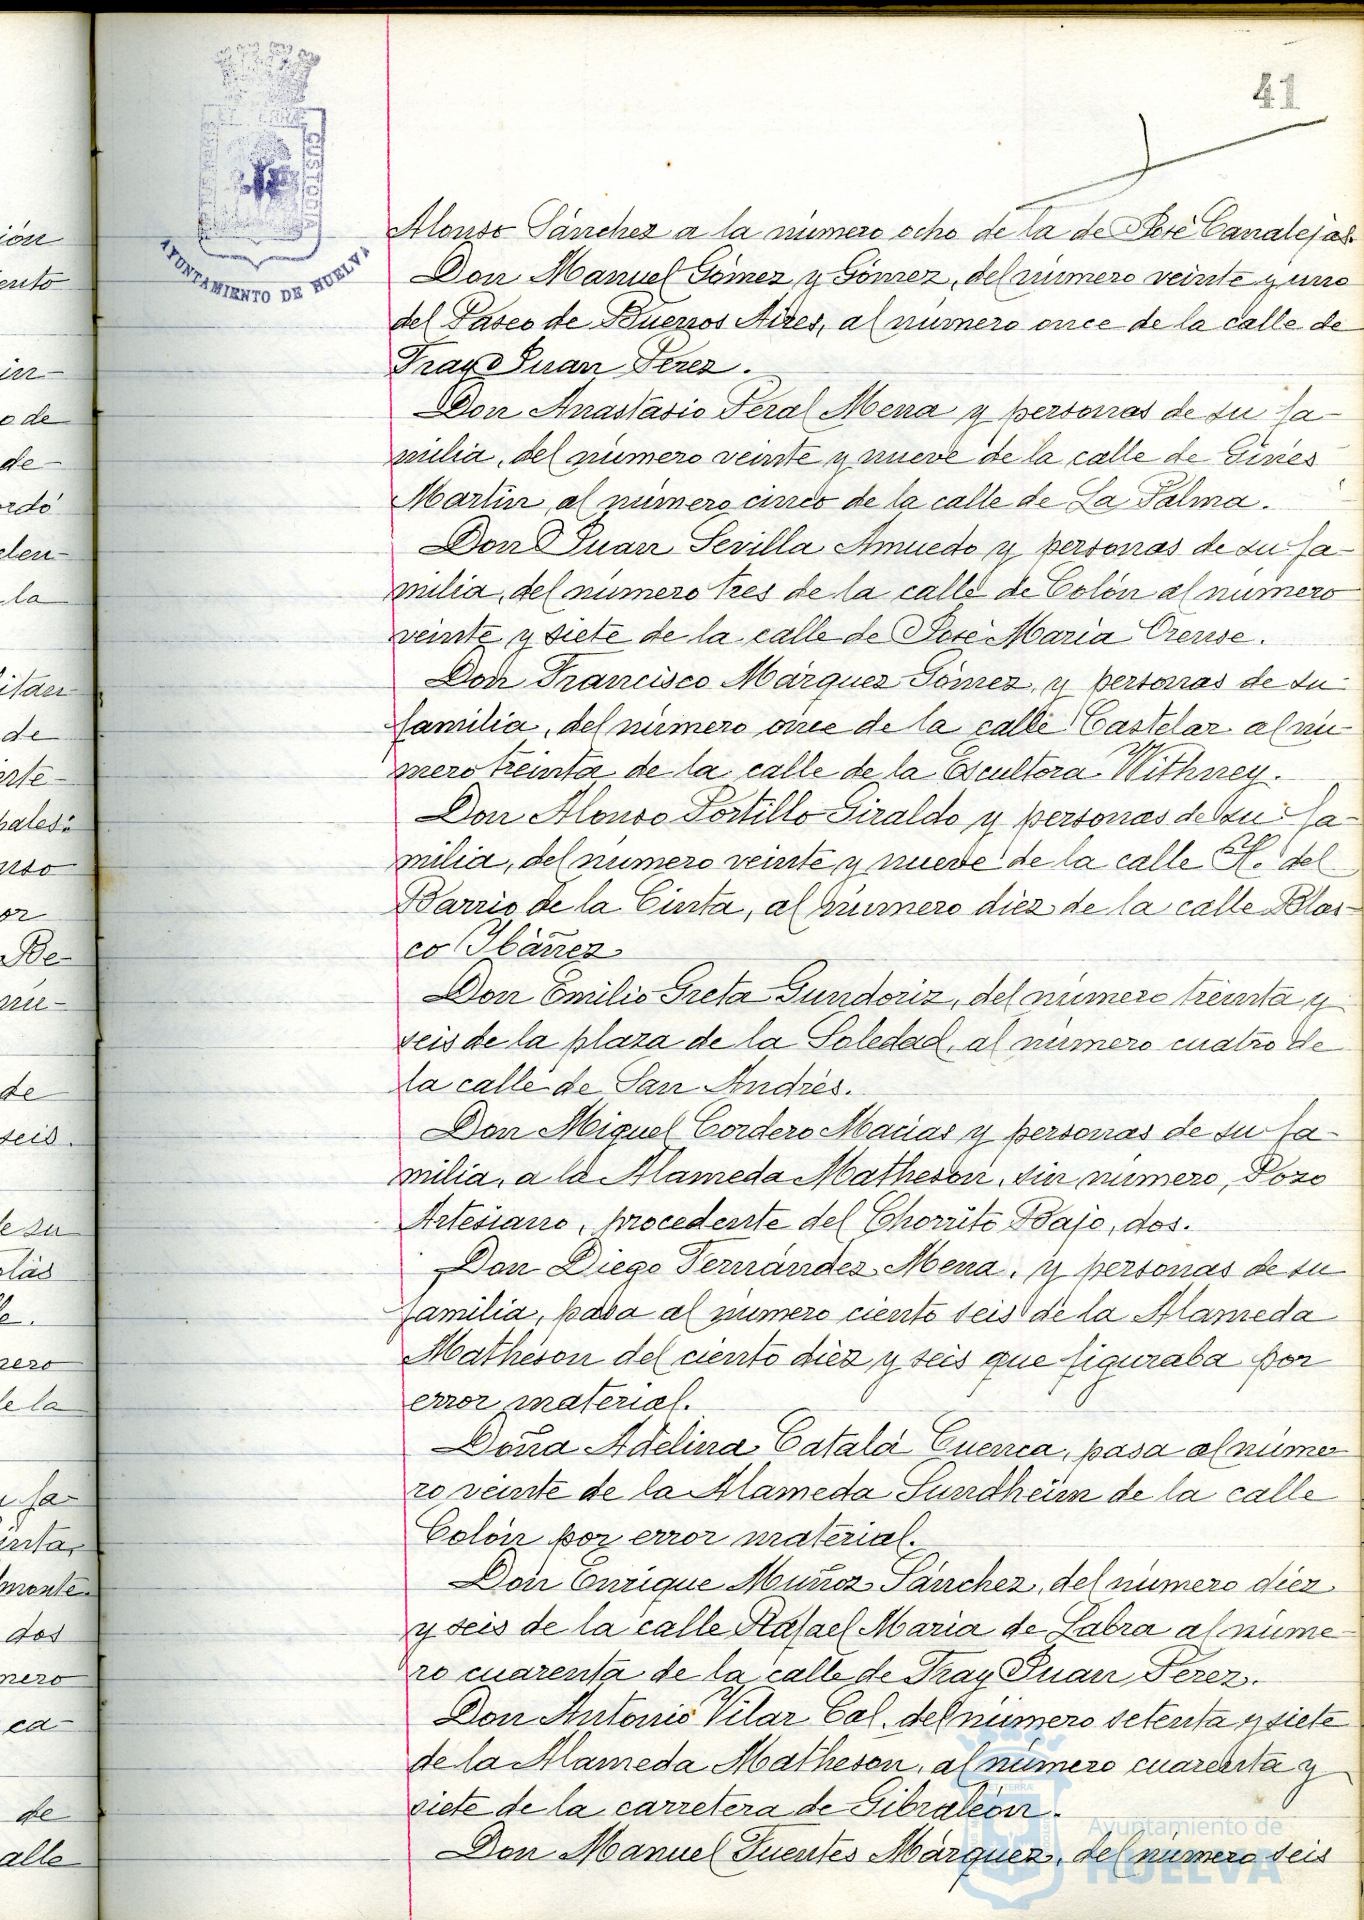 41
PORTUS MARIS ET TERRÆ CUSTODIA
AYUNTAMIENTO DE HUELVA
Alonso Sánchez a la número ocho de la de José Canalejas.
Don Manuel Gómez y Gómez, del número veinte y uno
del Paseo de Buenos Aires, al número once de la calle de
Fray Juan Pérez.
Don Anastasio Peral Mena y personas de su fa-
milia, del número veinte y nueve de la calle de Ginés
Martín, al número cinco de la calle de La Palma.
Don Juan Sevilla Amuedo y personas de su fa-
milia, del número tres de la calle de Colón al número
veinte y siete de la calle de José María Orense.
Don Francisco Márquez Gómez, y personas de su
familia, del número once de la calle Castelar al nú-
mero treinta de la calle de la Escultora Withney.
Don Alonso Portillo Giraldo y personas de su fa-
milia, del número veinte y nueve de la calle H. del
Barrio de la Cinta, al número diez de la calle Blas-
co Ibáñez
Don Emilio Greta Gundoriz, del número treinta y
seis de la plaza de la Soledad, al número cuatro de
la calle de San Andrés.
Don Miguel Cordero Macías y personas de su fa-
milia, a la Alameda Matheson, sin número, Pozo
Artesiano, procedente del Chorrito Bajo, dos.
Don Diego Fernández Mena, y personas de su
familia, pasa al número ciento seis de la Alameda
Matheson del ciento diez y seis que figuraba por
error material.
Doña Adelina Catalá Cuenca, pasa al núme-
ro veinte de la Alameda Sundheim de la calle
Colón por error material.
Don Enrique Muñoz Sánchez, del número diez
y seis de la calle Rafael María de Labra al núme-
ro cuarenta de la calle de Fray Juan Pérez.
Don Antonio Vilar Cal, del número setenta y siete
de la Alameda Matheson, al número cuarenta y
siete de la carretera de Gibraleón.
Don Manuel Fuentes Márquez, del número seis
Ayuntamiento de
HUELVA